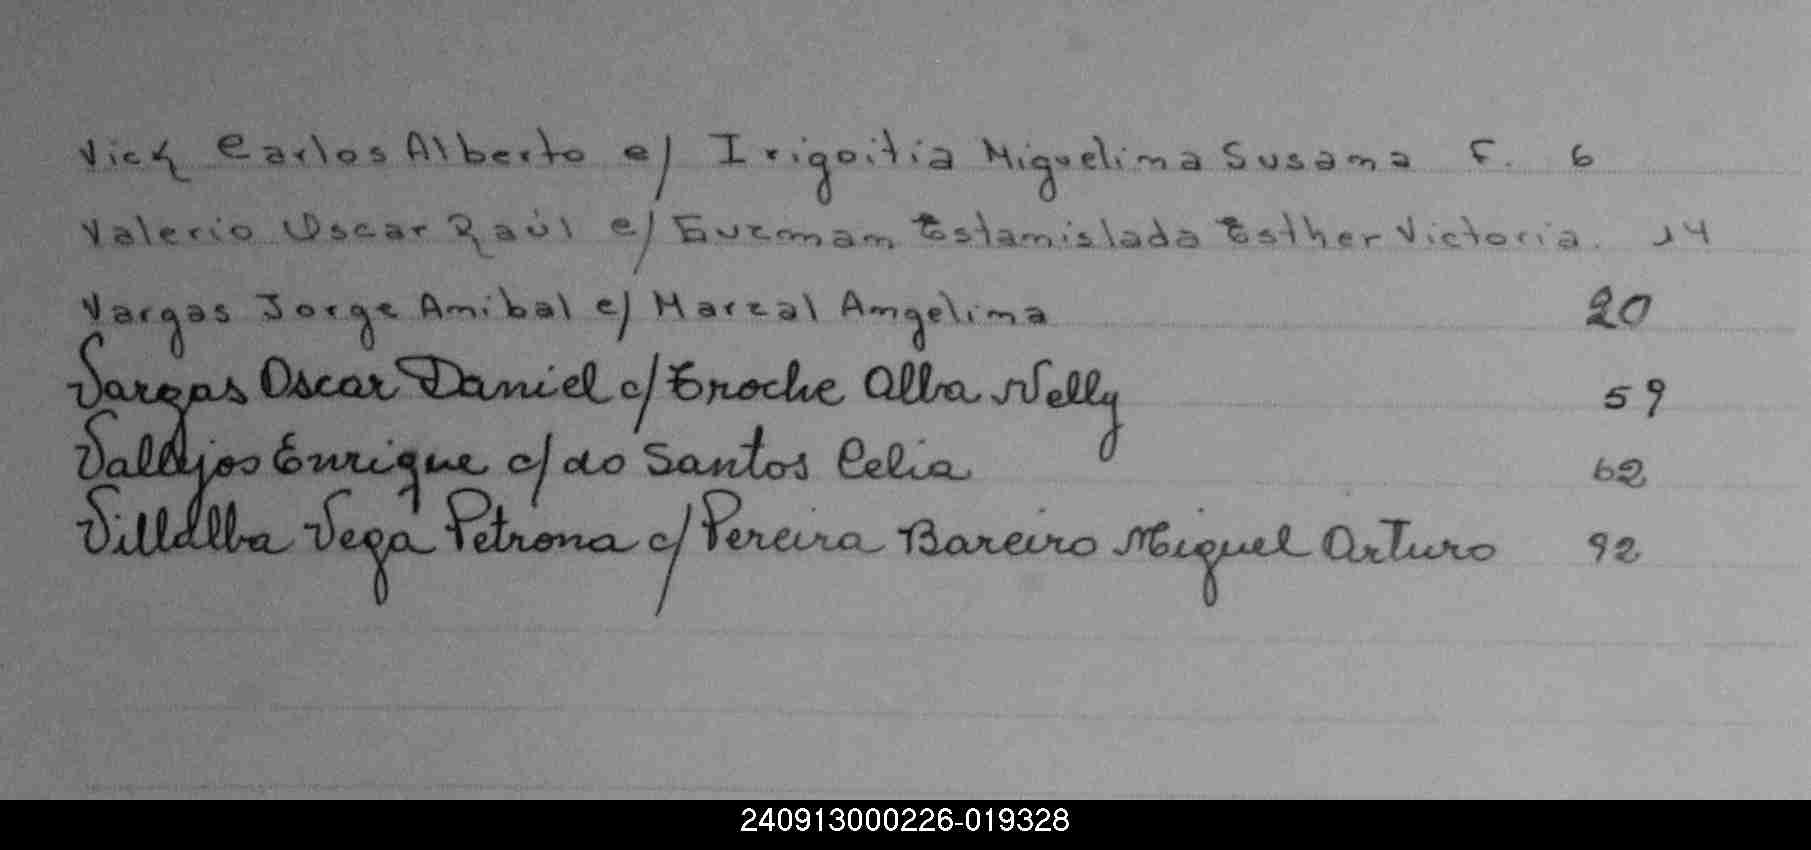 Vick Carlos Alberto c/ Irigoitia Miguelina Susana F. 6
Valerio Oscar Raúl c/ Guzman Estanislada Esther Victoria. 14
Vargas Jorge Anibal c/ Marzal Angelina 20
Vargas Oscar Daniel c/ Eroche Alba Nelly 59
Vallejos Enrique c/ do Santos Celia 62
Villalba Vega Petrona c/ Pereira Bareiro Miguel Arturo 92
240913000226-019328